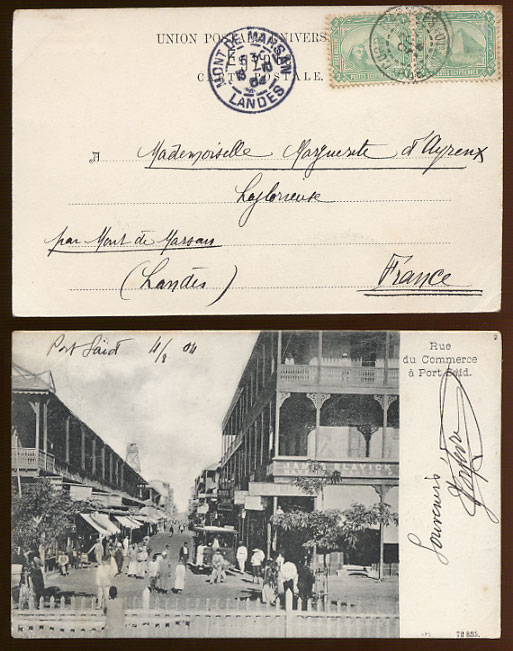 UNION POSTALE UNIVERS
CARTE POSTALE.
MONT-DE-MARSAN
LANDES
A Mademoiselle Marguerite d'Ayrenx
Laglorieuse
par Mont de Marsan
(Landes)
France
Port Saïd 4/8 04
Rue
du Commerce
à Port Saïd.
Souvenirs
72 855.